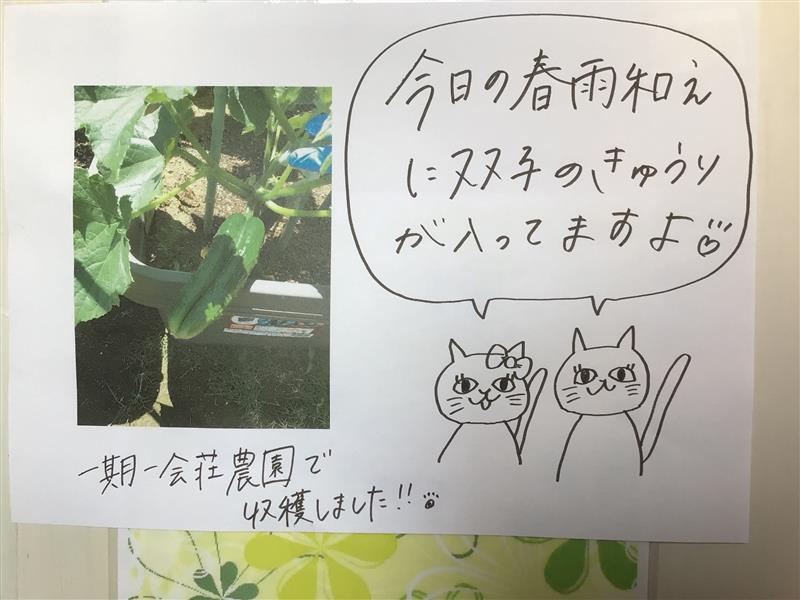 今日の春雨和え
に双子のきゅうり
が入ってますよ♡
一期一会荘農園で
収穫しました!!